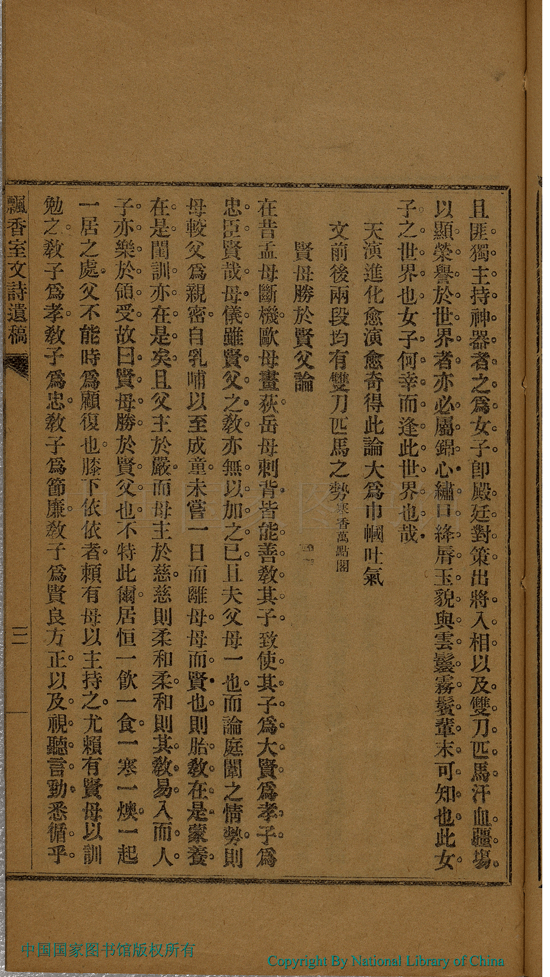 且匪獨主持神器者之爲女子卽殿廷對策出將入相以及雙刀匹馬汗血疆塲
以顯榮譽於世界者亦必屬錦心繡口絳唇玉貌與雲鬟霧鬢輩未可知也此女
子之世界也女子何幸而逢此世界也哉
天演進化愈演愈奇得此論大爲巾幗吐氣
文前後兩段均有雙刀匹馬之勢寒香萬點閣
賢母勝於賢父論
在昔孟母斷機歐母畫荻岳母刺背皆能善敎其子致使其子爲大賢爲孝子爲
忠臣賢哉母儀雖賢父之敎亦無以加之已且夫父母一也而論庭闈之情勢則
母較父爲親密自乳哺以至成童未嘗一日而離母母而賢也則胎敎在是蒙養
在是閨訓亦在是矣且父主於嚴而母主於慈慈則柔和柔和則其敎易入而人
子亦樂於領受故曰賢母勝於賢父也不特此爾居恒一飮一食一寒一燠一起
一居之處父不能時爲顧復也膝下依依者賴有母以主持之尤賴有賢母以訓
勉之敎子爲孝敎子爲忠敎子爲節廉敎子爲賢良方正以及視聽言動悉循乎
飄香室文詩遺稿
三
中国国家图书馆版权所有
Copyright By National Library of China